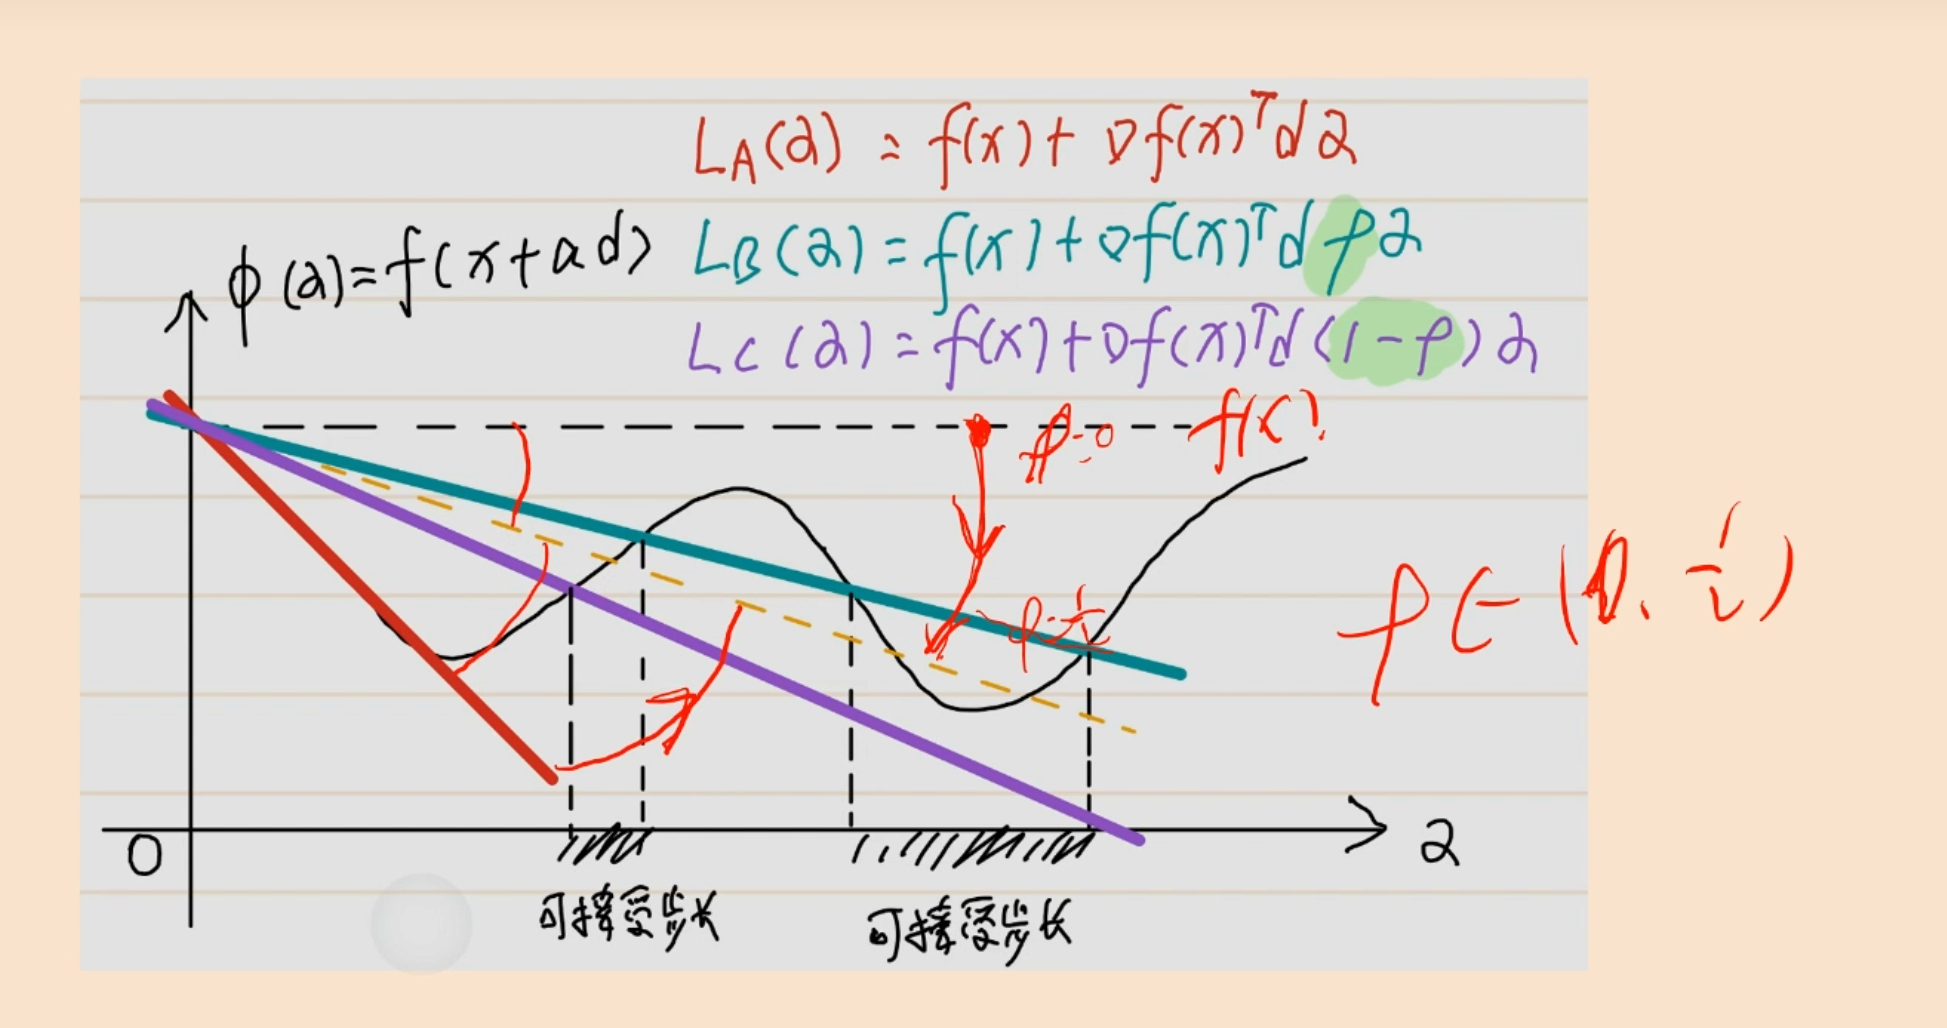 L_A(α) = f(x) + ∇f(x)ᵀdα
φ(α)=f(x+αd)
L_B(α) = f(x) + ∇f(x)ᵀdρα
L_C(α) = f(x) + ∇f(x)ᵀd(1-ρ)α
ρ=0
f(x)
ρ=1/2
ρ∈(0,1/2)
0
α
可接受步长
可接受步长